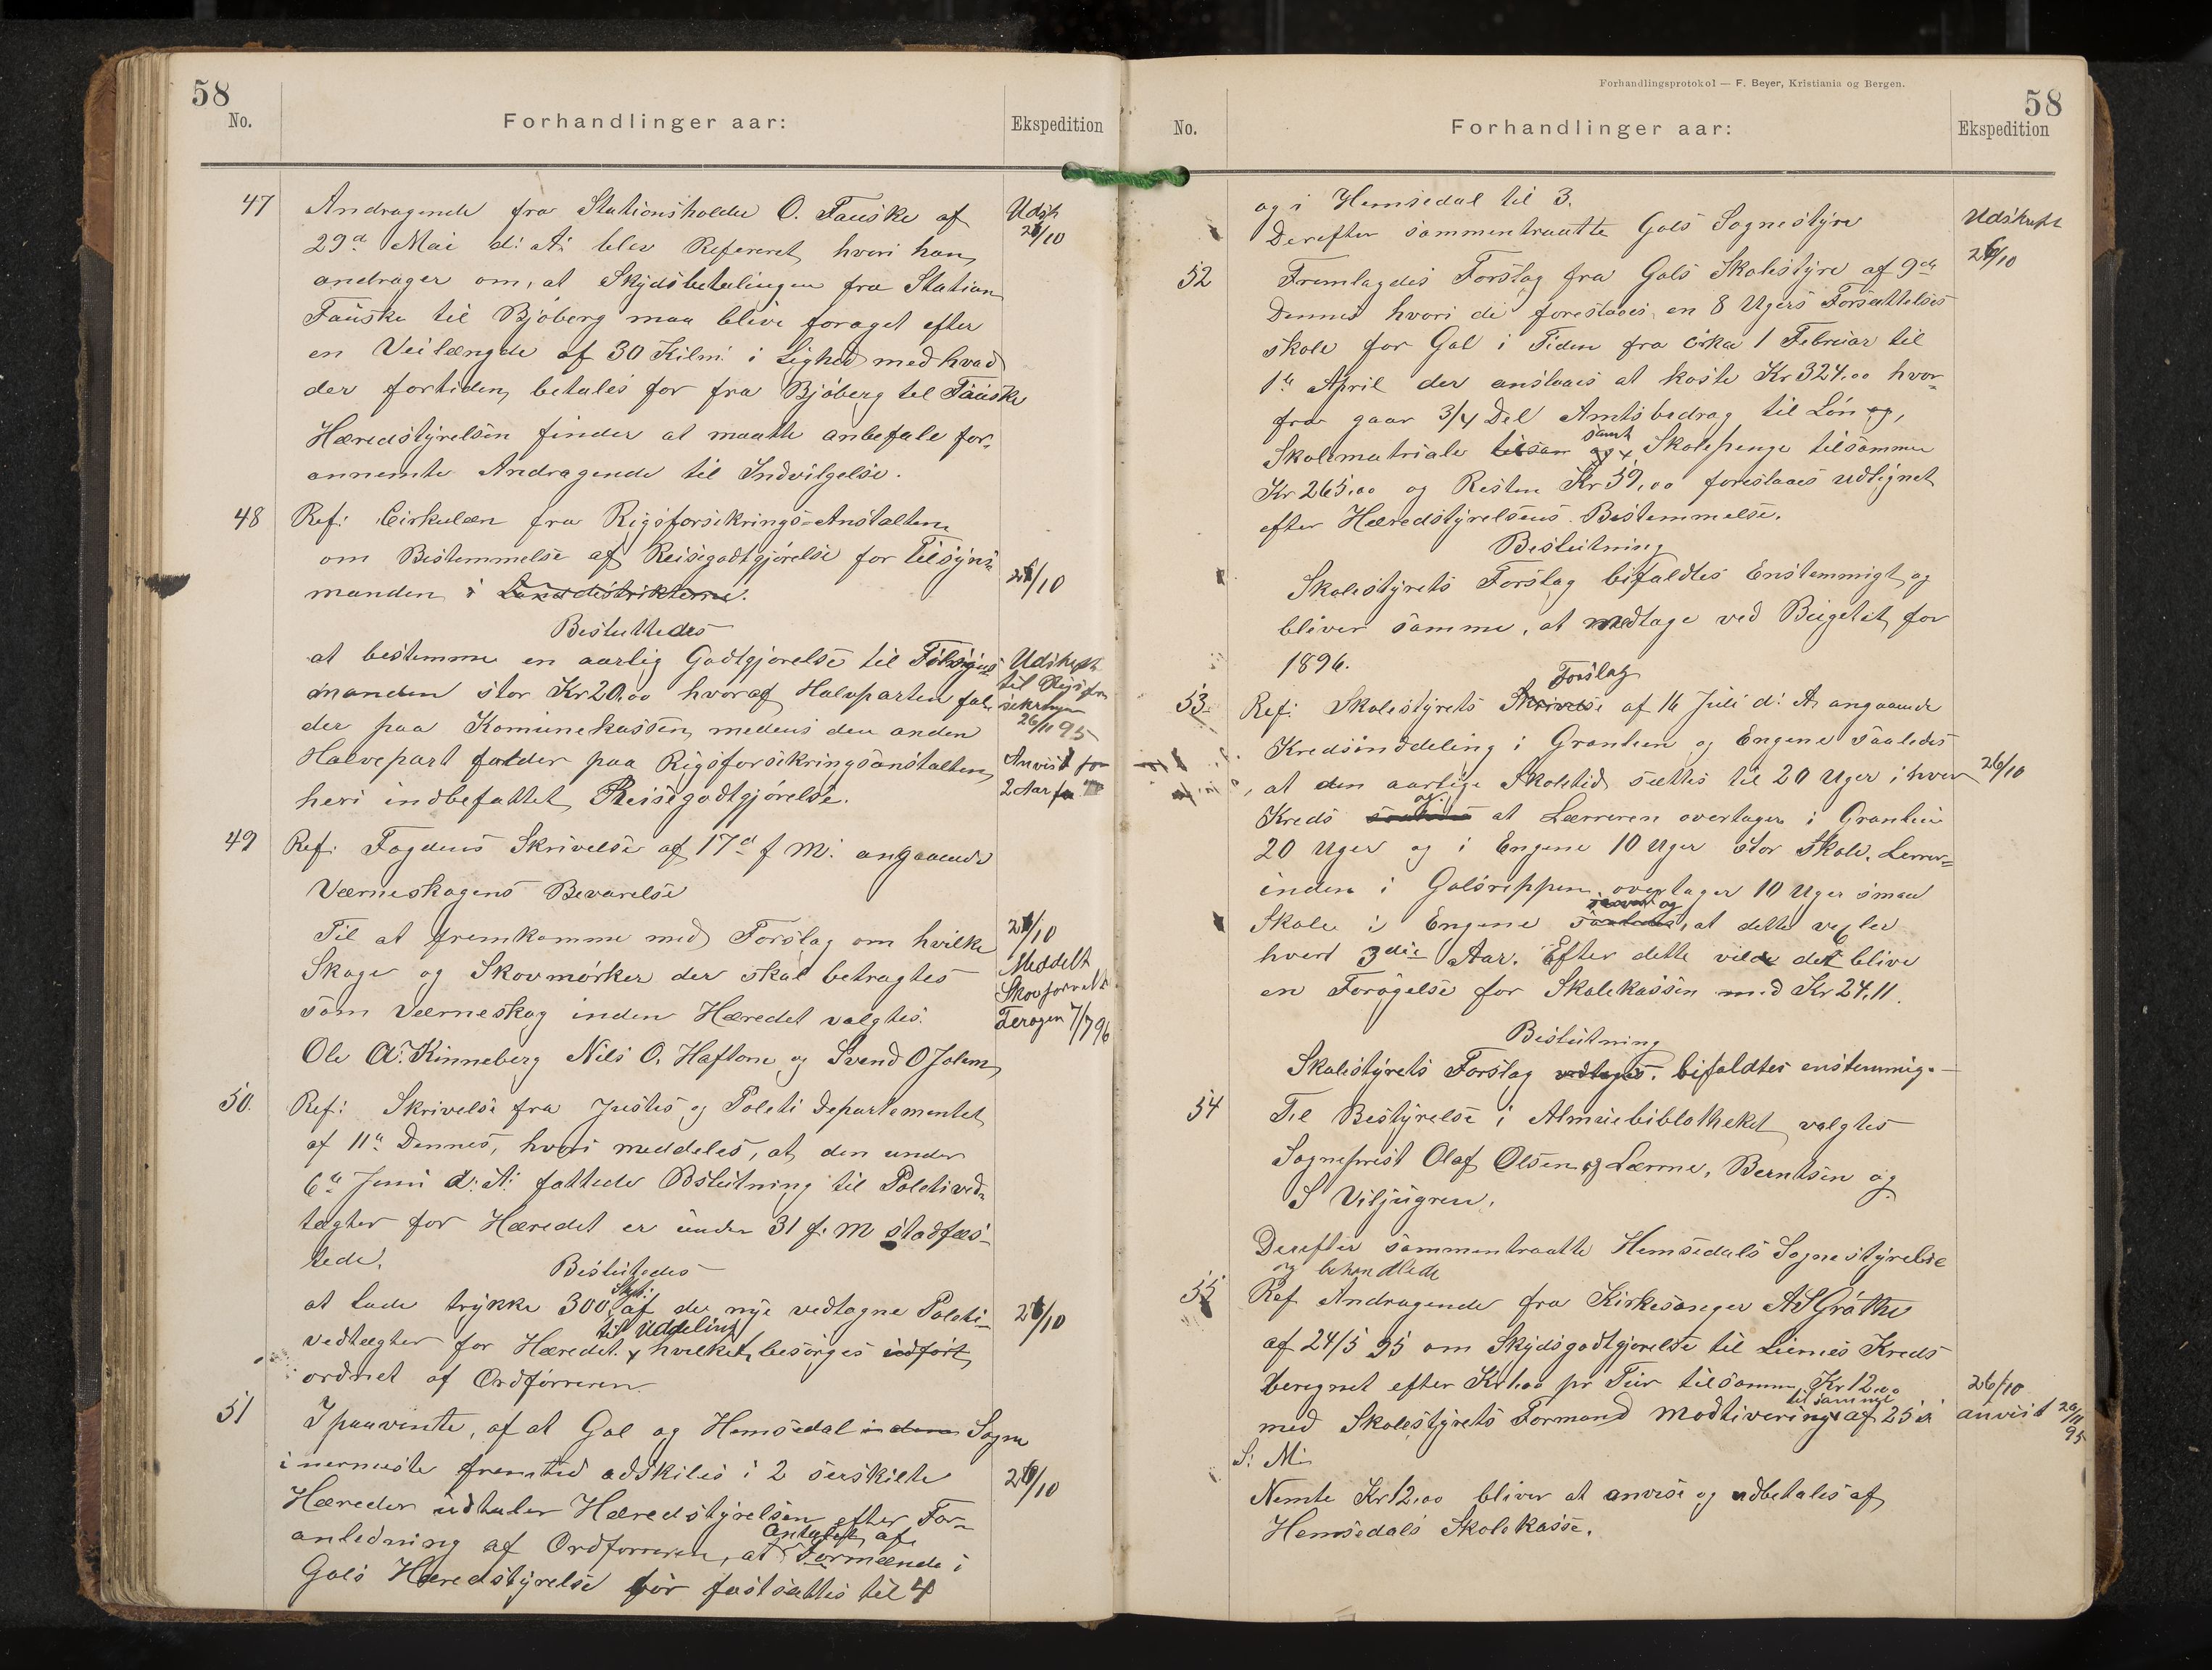 58
No.
Forhandlinger aar:
Ekspedition
47
Andragende fra Stationsholder O. Fauske af
29d Mai d: A: blev Refereret hvori han
andrager om, at Skydsbetalingen fra Station
Fauske til Bjøberg maa blive forøget efter
en Veilængde af 30 Kilm: i Lighed med hvad
der fortiden betales for fra Bjøberg til Fauske
Hæredstyrelsen finder at maatte anbefale for-
annemte Andragende til Indvilgelse.
Udsk
26/10
48
Ref: Cirkulær fra Rigsforsikrings-Anstalten
om Bestemmelse af Reisegodtgjørelse for Tilsyns-
manden i Landdistrikterne.
26/10
Besluttedes
at bestemme en aarlig Godtgjørelse til Tilsyns
manden stor Kr 20,00 hvoraf Halvparten fal-
der paa Komunekassen, medens den anden
Halvepart falder paa Rigsforsikringsanstalten,
heri indbefattet Reisegodtgjørelse.
Udskrift
til Rigsfor
sikringen
26/11 95
Anvist for
2 Aar
49
Ref: Fogdens Skrivelse af 17d f M: angaaende
Værneskogens Bevarelse
Til at fremkomme med Forslag om hvilke
Skoge og Skovmørker der skal betragtes
som Værneskog inden Hæredet valgtes.
Ole A. Kinneberg Nils O. Haftorn og Svend O Jolem
26/10
Meddelt
Skovforvalt
7/7 96
50.
Ref: Skrivelse fra Justis og Politi Departementet
af 11d Dennes, hvori meddeles, at den under
6te Juni d: A: fattede Bslutning til Politived-
tægter for Hæredet er under 31 f. M stadfæs-
tede.
Beslutedes
at lade trykke 300 Stk: af de nye vedtagne Politi-
vedtægter for Hæredet til Uddeling hvilket besørges udført
ordnet af Ordførreren.
26/10
51
I paavente, af at Gol og Hemsedal Sogne
i nermeste fremtid adskiles i 2 serskilte
Hæreder udtaler Hæredstyrelsen efter For-
anledning af Ordførreren, at Antallet af Formænde i
Gols Hæredstyrelse bør fastsættes til 4
26/10
Forhandlingsprotokol — F. Beyer, Kristiania og Bergen.
58
No.
Forhandlinger aar:
Ekspedition
og i Hemsedal til 3.
Derefter sammentraatte Gols Sognestyre
52
Fremlagdes Forslag fra Gols Skolestyre af 9de
Dennes hvori de foreslaaes en 8 Ugers Forsættelses
skole for Gol i Tiden fra cirka 1 Februar til
1te April der anslaaes at koste Kr 324.00 hvor-
fra gaar 3/4 Del Amtsbedrag til Løn og,
Skolematriale tilsam og samt Skolepenge tilsammen
Kr 265,00 og Resten Kr 59,00 foreslaaes udlignet
efter Hæredstyrelsens Bestemmelse.
Udskrift
26/10
Beslutning
Skolestyrets Forslag bifaldtes Enstemmigt og
bliver samme, at medtage ved Bugetet for
1896.
53.
Ref: Skolestyrets Skrivelse Forslag af 16 Juli d: A. angaaende
Kredsinddeling i Granlien og Engene saaledes
, at den aarlige Skoletid sættes til 20 Uger i hver
Kreds saaledes og at Lærreren overtager i Granlien
20 Uger og i Engene 10 Uger stor Skole. Lerrer-
inden i Golsreppen overtager 10 Uger smaa
Skole i Engene saaledes, og at dette vexler
hvert 3die Aar. Efter dette vilde det blive
en Forøgelse for Skolekassen med Kr 24,11.
26/10
Beslutning
Skolestyrets Forslag vedtages. bifaldtes enstemmig.
54
Til Bestyrelse i Almuebiblotheket valgtes
Sogneprest Olaf Olsen, og Lærrne, Berntsen og
S Viljugren.
Derefter sammentraatte Hemsedals Sognestyrelse
og behandlede
55
Ref Andragende fra Kirkesanger A S Grøthe
af 24/5 95 om Skydsgodtgjørelse til Liernes Kreds
beregnet efter Kr 1.00 pr Tur tilsamm. Kr 12.00
med Skolestyrets Formand Modtivering til samme af 25de
S: M:
Nemte Kr 12.00 bliver at anvise og udbetales af
Hemsedals Skolekasse.
26/10
anvist 26/11 95